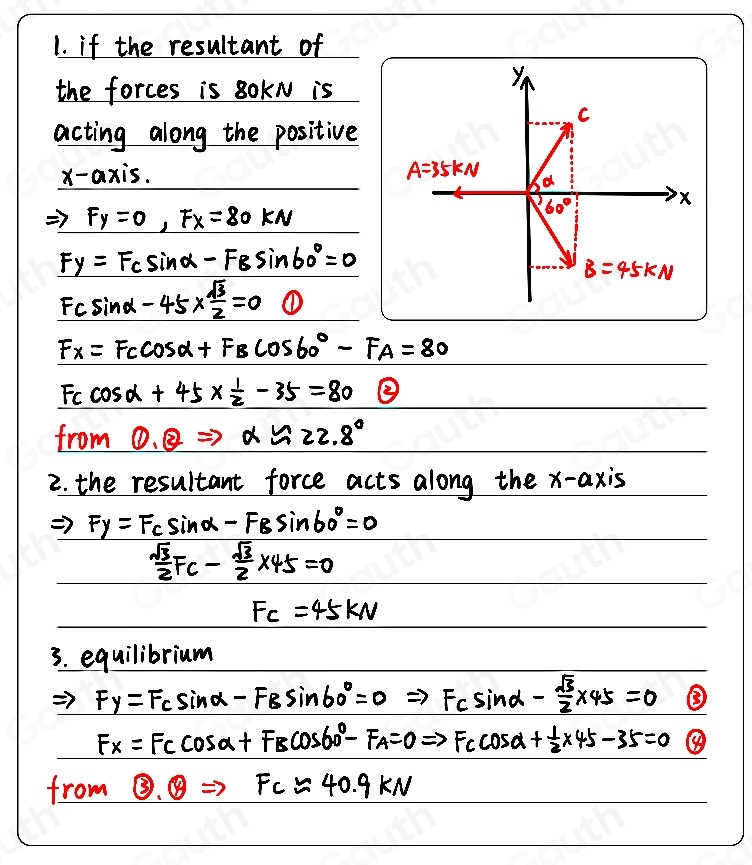 1. if the resultant of
the forces is 80KN is
acting along the positive
x-axis.
⇒ Fy = 0 , Fx = 80 KN
Fy = Fc sinα - FB sin60° = 0
Fc sinα - 45 × √3/2 = 0 ①
Fx = Fc cosα + FB cos60° - FA = 80
Fc cosα + 45 × 1/2 - 35 = 80 ②
from ①.② ⇒ α ≈ 22.8°
2. the resultant force acts along the x-axis
⇒ Fy = Fc sinα - FB sin60° = 0
√3/2 Fc - √3/2 × 45 = 0
Fc = 45 KN
3. equilibrium
⇒ Fy = Fc sinα - FB sin60° = 0 ⇒ Fc sinα - √3/2 × 45 = 0 ③
Fx = Fc cosα + FB cos60° - FA = 0 ⇒ Fc cosα + 1/2 × 45 - 35 = 0 ④
from ③.④ ⇒ Fc ≈ 40.9 KN
y
C
A=35KN
α
x
60°
B = 45KN
Gauth